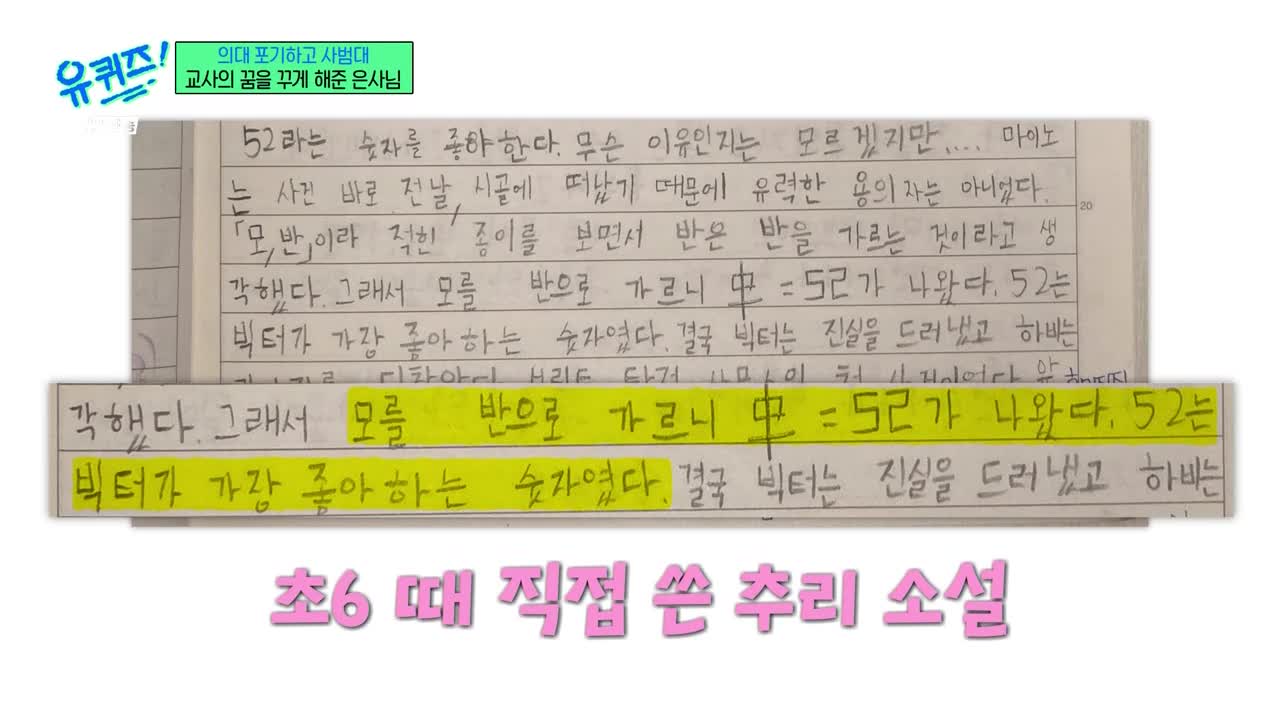 유퀴즈!
의대 포기하고 사범대
교사의 꿈을 꾸게 해준 은사님
52라는 숫자를 좋아한다. 무슨 이유인지는 모르겠지만.... 마이노
는 사건 바로 전날, 시골에 떠났기 때문에 유력한 용의자는 아니었다.
20
「모, 반」이라 적힌 종이를 보면서 반은 반을 가르는 것이라고 생
각했다. 그래서 모를 반으로 가르니 = 52가 나왔다. 52는
빅터가 가장 좋아하는 숫자였다. 결국 빅터는 진실을 드러냈고 하바는
각했다. 그래서 모를 반으로 가르니 = 52가 나왔다. 52는
빅터가 가장 좋아하는 숫자였다. 결국 빅터는 진실을 드러냈고 하바는
초6 때 직접 쓴 추리 소설